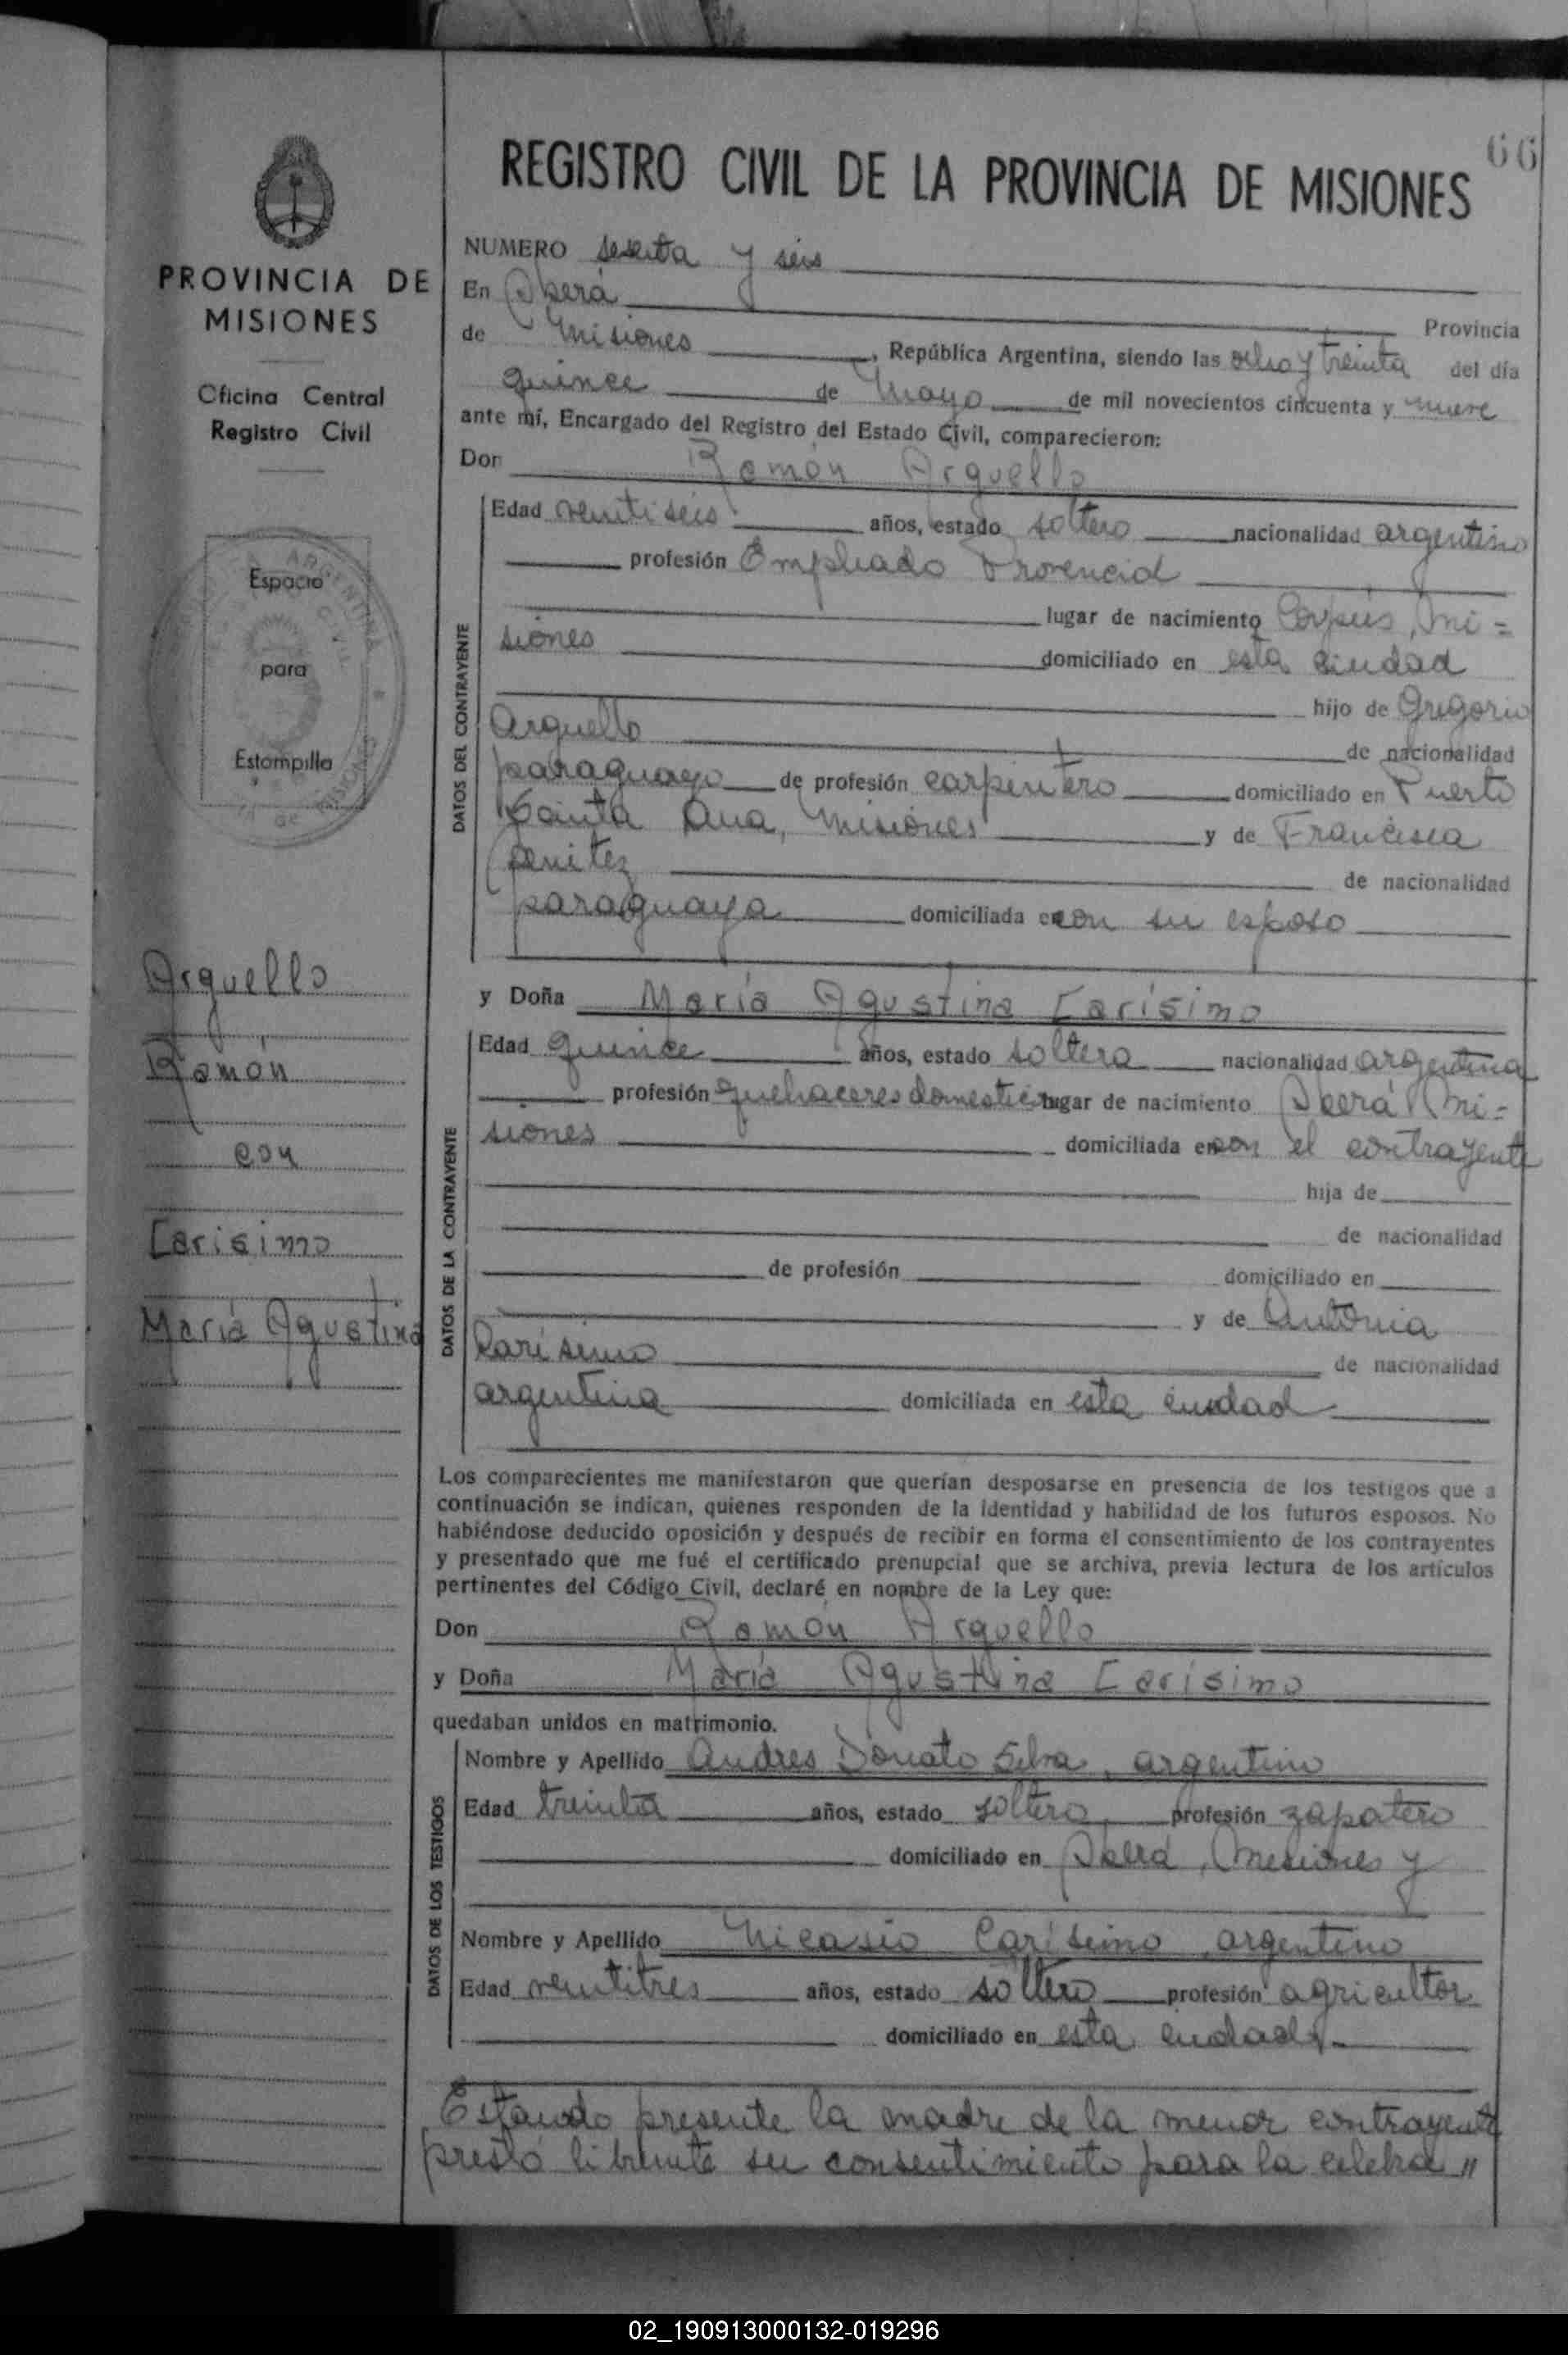 66
REGISTRO CIVIL DE LA PROVINCIA DE MISIONES
PROVINCIA DE
MISIONES
Oficina Central
Registro Civil
Espacio
para
Estampilla
Arguello
Román
con
Carisimo
María Agustina
NUMERO sesenta y seis
En Oberá Provincia
de Misiones, República Argentina, siendo las ocho y treinta del día
quince de Mayo de mil novecientos cincuenta y nueve
ante mí, Encargado del Registro del Estado Civil, comparecieron:
Don Román Arguello
DATOS DEL CONTRAYENTE
Edad veintiseis años, estado soltero nacionalidad argentino
profesión Empleado Provincial
lugar de nacimiento Corpus, Mi=
siones domiciliado en esta ciudad
hijo de Gregorio
Arguello de nacionalidad
paraguayo de profesión carpintero domiciliado en Puerto
Santa Ana, Misiones y de Francisca
Benitez de nacionalidad
paraguaya domiciliada en con su esposo
y Doña María Agustina Carísimo
DATOS DE LA CONTRAYENTE
Edad quince años, estado soltera nacionalidad argentina
profesión quehaceres domesticos lugar de nacimiento Oberá Mi=
siones domiciliada en con el contrayente
hija de
de nacionalidad
de profesión domiciliado en
y de Antonia
Carísimo de nacionalidad
argentina domiciliada en esta ciudad
Los comparecientes me manifestaron que querían desposarse en presencia de los testigos que a
continuación se indican, quienes responden de la identidad y habilidad de los futuros esposos. No
habiéndose deducido oposición y después de recibir en forma el consentimiento de los contrayentes
y presentado que me fué el certificado prenupcial que se archiva, previa lectura de los artículos
pertinentes del Código Civil, declaré en nombre de la Ley que:
Don Román Arguello
y Doña María Agustina Carísimo
quedaban unidos en matrimonio.
DATOS DE LOS TESTIGOS
Nombre y Apellido Andres Donato Silva, argentino
Edad treinta años, estado soltero, profesión zapatero
domiciliado en Oberá, Misiones y
Nombre y Apellido Nicasio Carísimo, argentino
Edad veintitres años, estado soltero profesión agricultor
domiciliado en esta ciudad.-
Estando presente la madre de la menor contrayente
prestó libremte su consentimiento para la celebra "
02_190913000132-019296